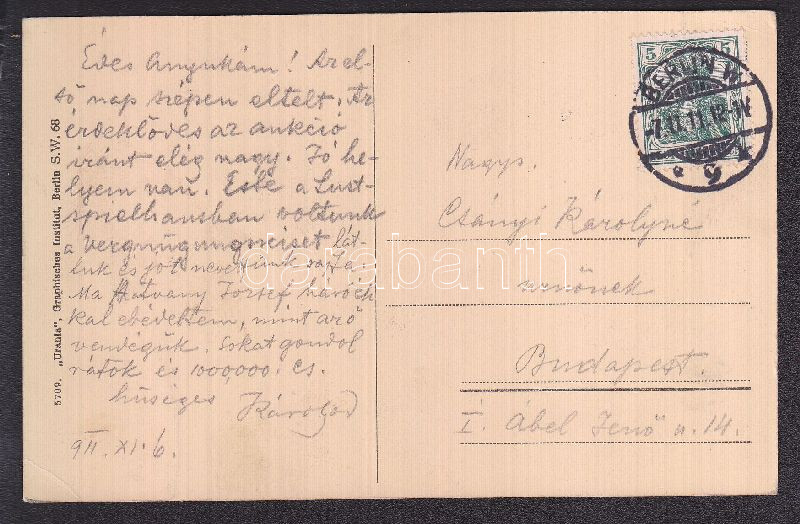 Édes Anyukám! Az el-
ső nap szépen eltelt. Az
érdeklődés az aukció
iránt elég nagy. Jó he-
lyem van. Este a Lust-
spielhausban voltunk
a vergnügungsreiset lát-
tuk és jót nevettünk rajta.
Ma Hatvany József báróék
kal ebédeltem, mint az ő
vendégük. Sokat gondol
rátok és 1000,000. cs.
hűséges Károlyod
911. XI. 6.
5709. „Urania", Graphisches Institut, Berlin S.W. 68
5 5
BERLIN W.
7.11.11.
9
Nagys.
Csányi Károlyné
urnőnek
Budapest.
I. Ábel Jenő u. 14.
darabanth